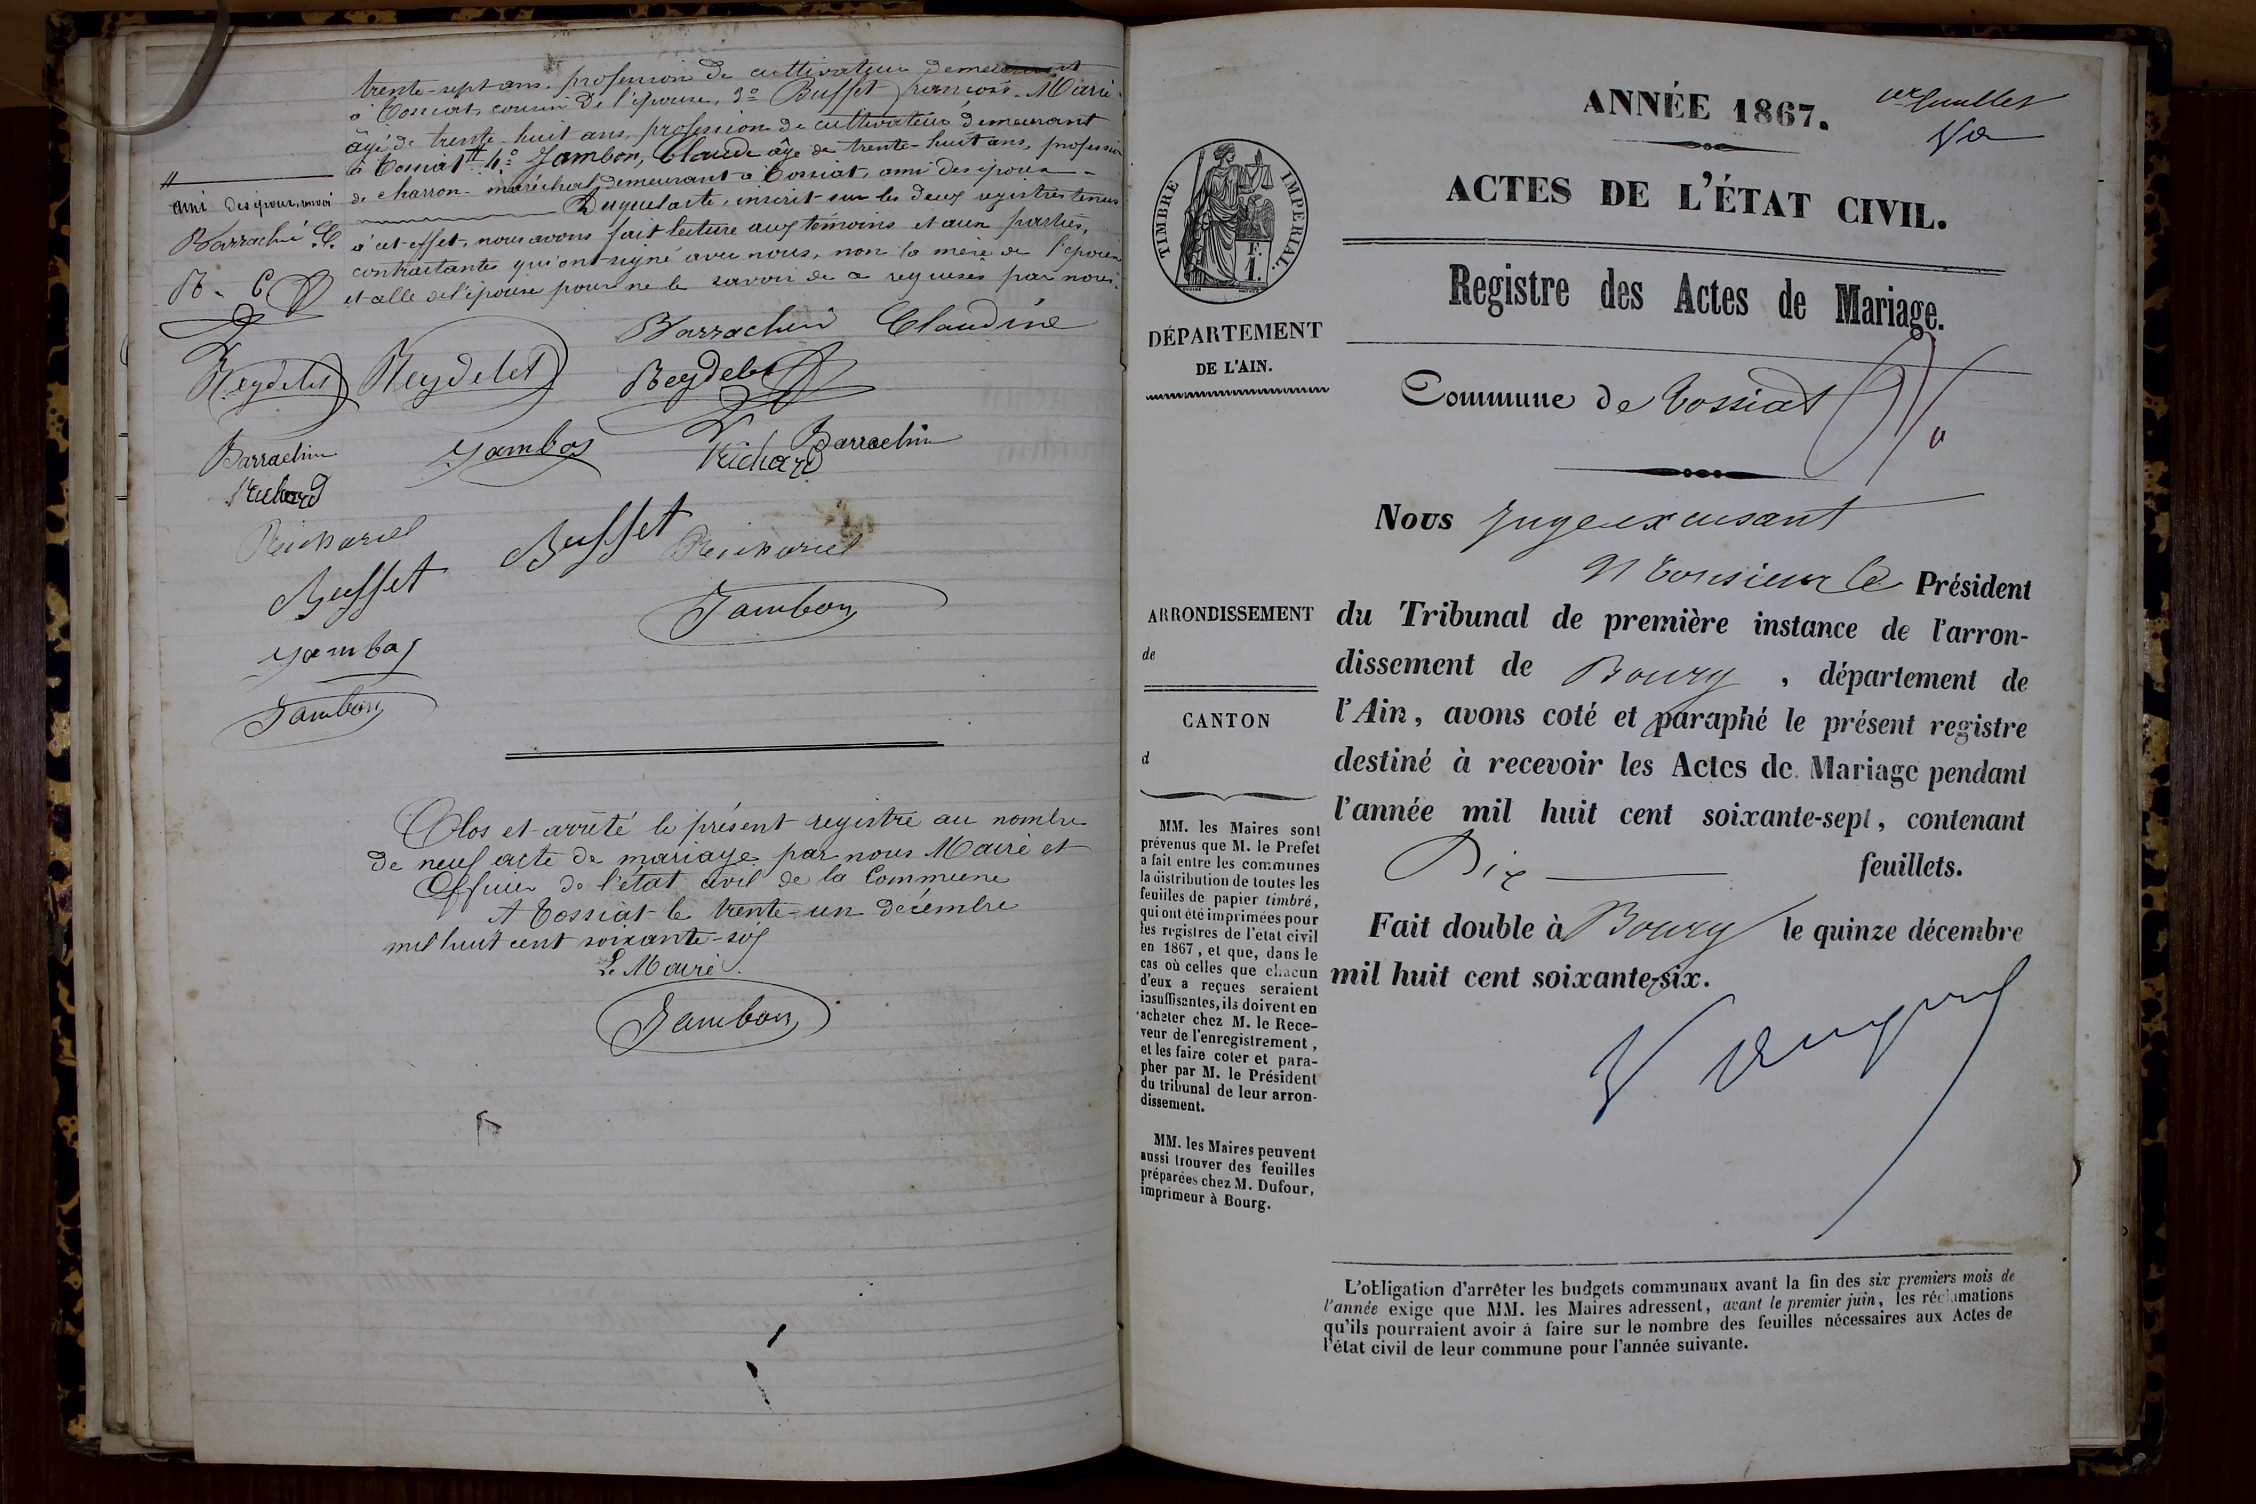 trente-sept ans, profession de cultivateur demeurant
à Tossiat, cousin de l'épouse, 3° Buffet François-Marie
âgé de trente-huit ans, profession de cultivateur demeurant
à Tossiat # 4° Jambon, Claude âgé de trente-huit ans, profession
de charron-maréchal demeurant à Tossiat, ami des époux
Duquel acte, inscrit sur les deux registres tenus
à cet effet, nous avons fait lecture aux témoins et aux parties,
contractantes qui ont signé avec nous, non la mère de l'époux
et celle de l'épouse pour ne le savoir de ce requises par nous.
#
ami des époux, renvoi
Barrachin C.
R. C.
Barrachin Claudine
Reydelet Reydelet Reydelet
Barrachin Jambon Richard Barrachin
Richard
Buffet
Buffet
Jambon
Jambon
Jambon
Clos et arrêté le présent registre au nombre
de neuf acte de mariage par nous Maire et
Officier de l'état civil de la Commune
A Tossiat le trente-un décembre
mil huit cent soixante-six
Le Maire
Jambon
ANNÉE 1867.
1er feuillet
ACTES DE L'ÉTAT CIVIL.
TIMBRE IMPERIAL.
F.
1.
Registre des Actes de Mariage.
DÉPARTEMENT
DE L'AIN.
Commune de Tossiat
Nous Juge excusant
Monsieur le Président
du Tribunal de première instance de l'arron-
dissement de Bourg, département de
l'Ain, avons coté et paraphé le présent registre
destiné à recevoir les Actes de Mariage pendant
l'année mil huit cent soixante-sept, contenant
Dix feuillets.
Fait double à Bourg le quinze décembre
mil huit cent soixante-six.
ARRONDISSEMENT
de
CANTON
d
MM. les Maires sont
prévenus que M. le Prefet
a fait entre les communes
la distribution de toutes les
feuilles de papier timbré,
qui ont été imprimées pour
les registres de l'etat civil
en 1867, et que, dans le
cas où celles que chacun
d'eux a reçues seraient
insuffisantes, ils doivent en
acheter chez M. le Rece-
veur de l'enregistrement,
et les faire coter et para-
pher par M. le Président
du tribunal de leur arron-
dissement.
MM. les Maires peuvent
aussi trouver des feuilles
préparées chez M. Dufour,
imprimeur à Bourg.
L'obligation d'arrêter les budgets communaux avant la fin des six premiers mois de
l'année exige que MM. les Maires adressent, avant le premier juin, les réclamations
qu'ils pourraient avoir à faire sur le nombre des feuilles nécessaires aux Actes de
l'état civil de leur commune pour l'année suivante.